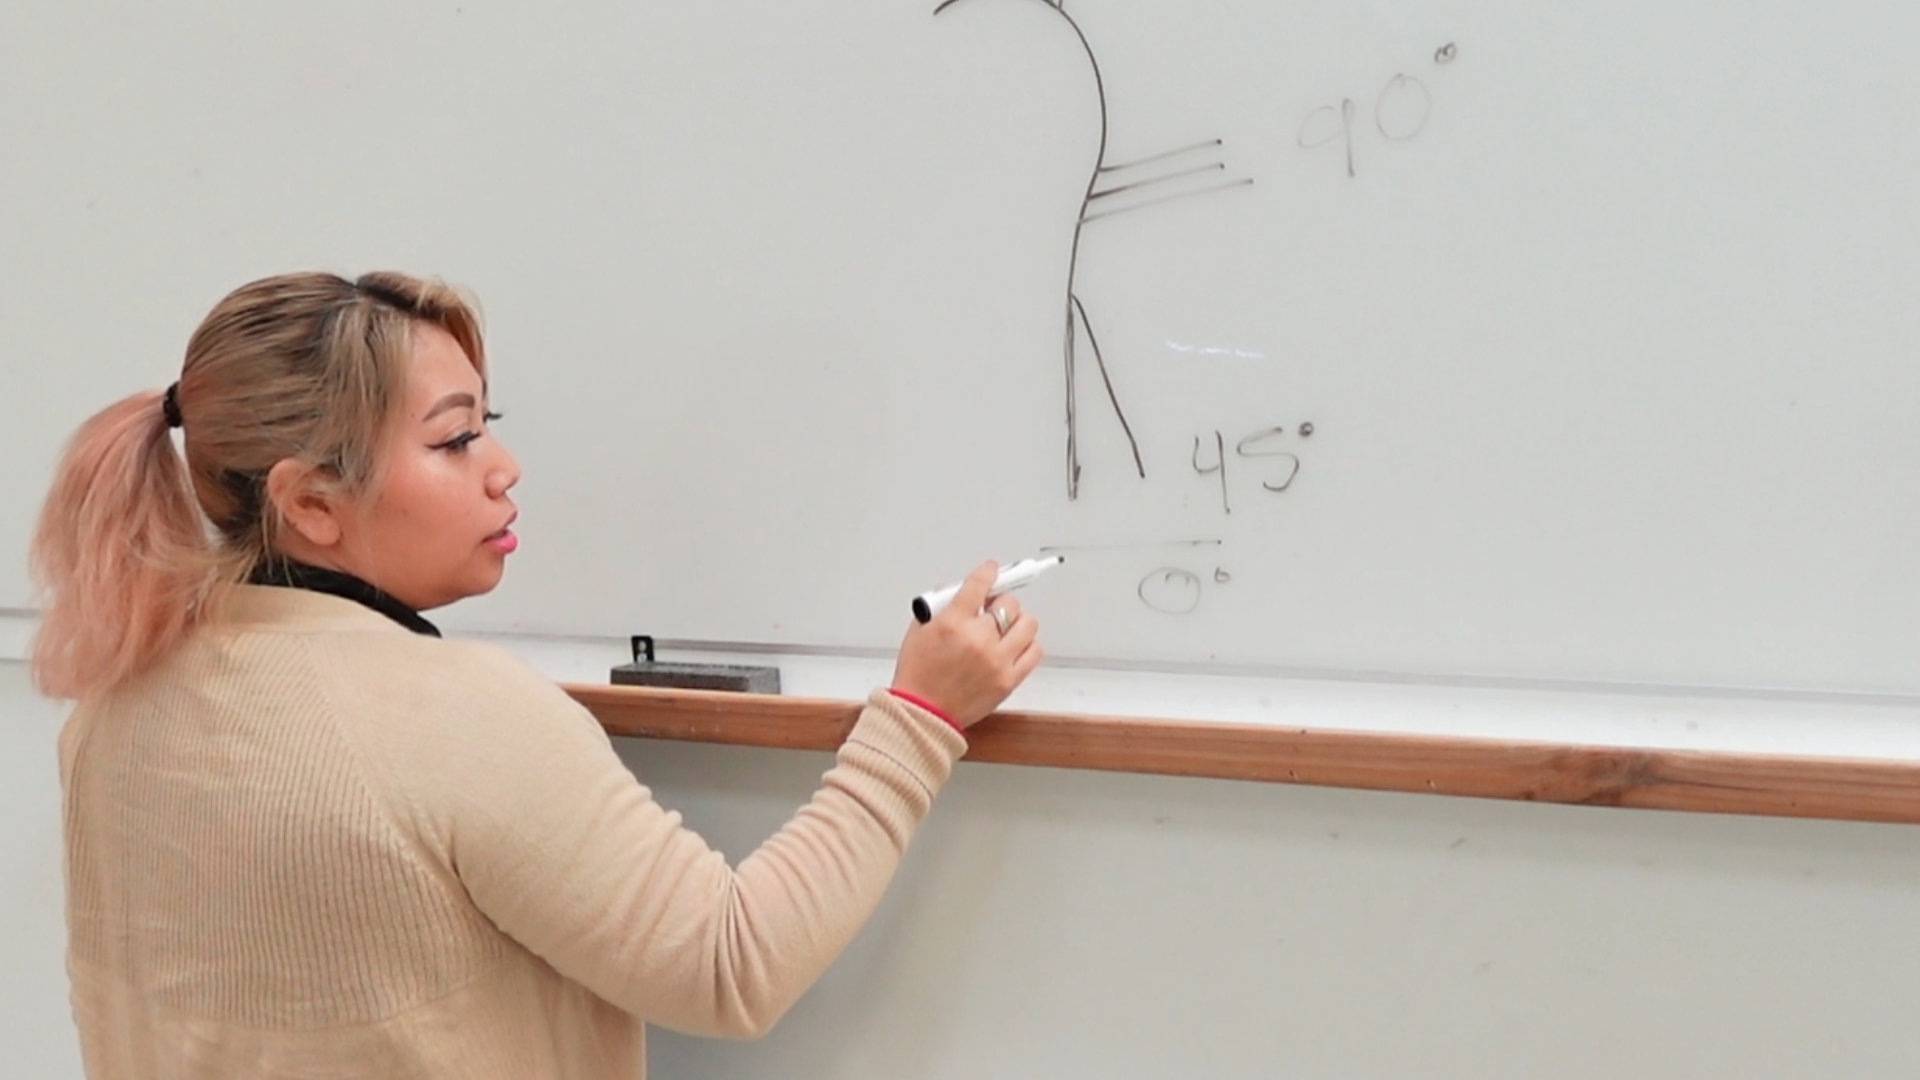 90°
45°
0°